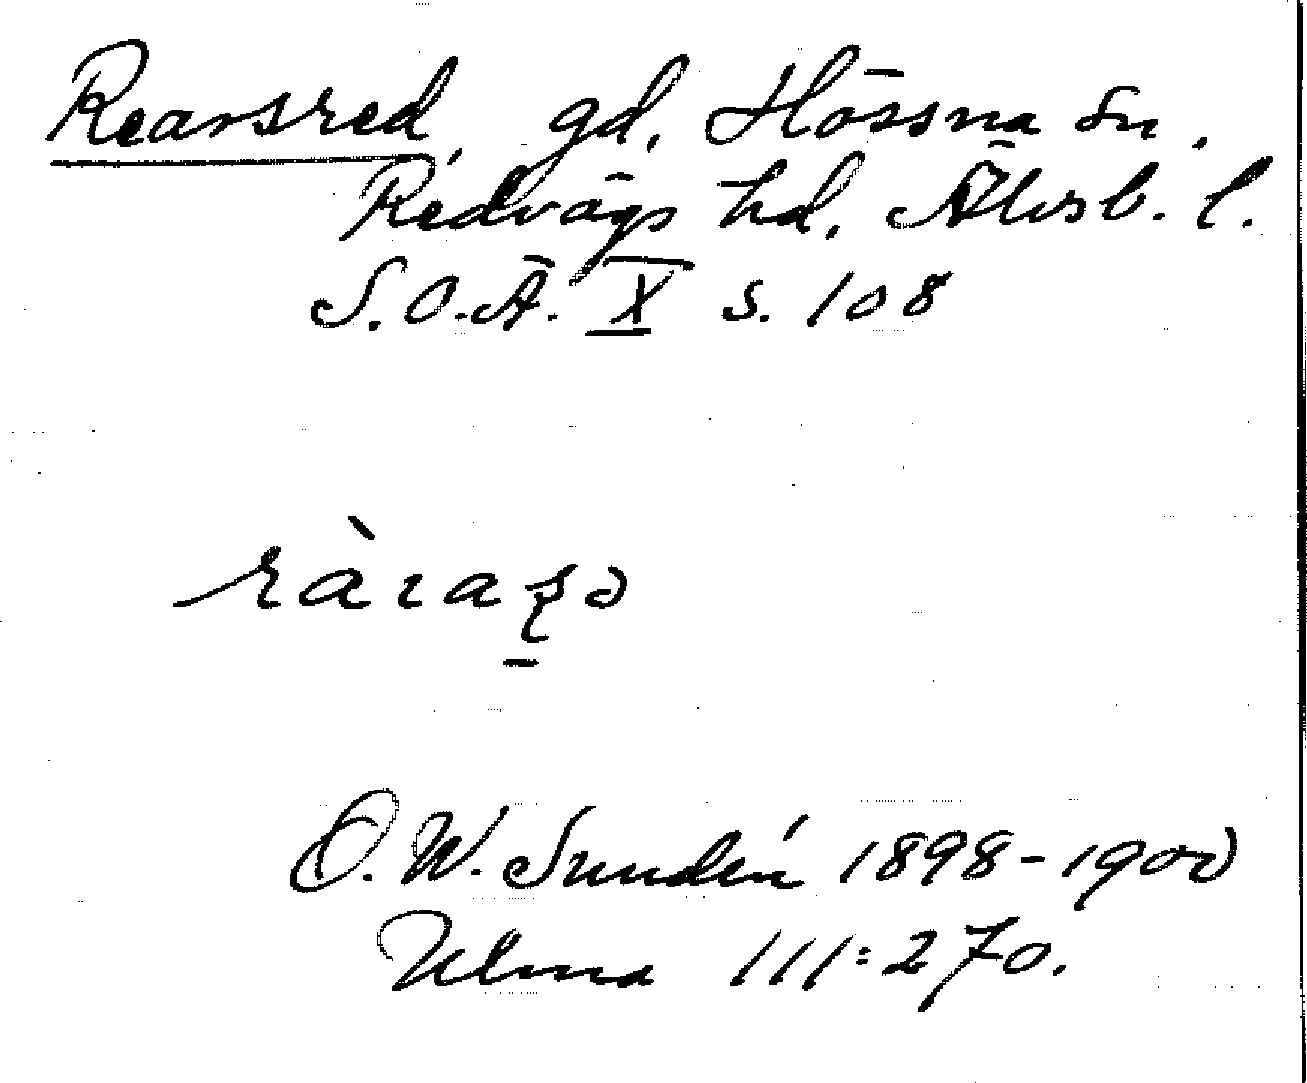 Rearsred, gd, Hössna sn,
Redvägs hd, Älvsb. l.
S.O.Ä. X s. 108
O.W. Sundén 1898-1900
Ulma 111:270.